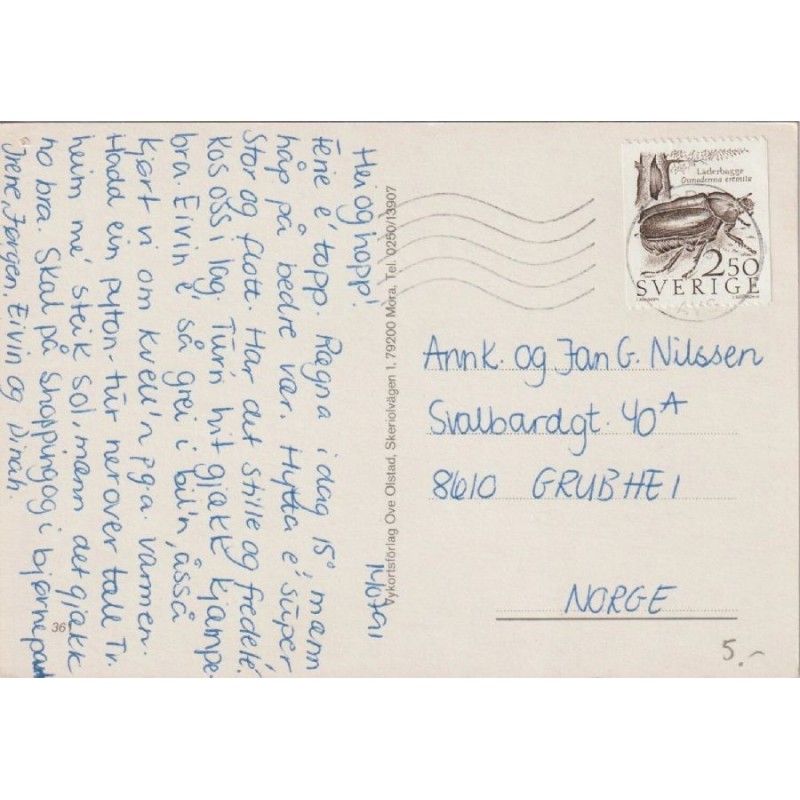 Hei og hopp! 14/07-91
Ferie é topp. Regna i dag 15° mænn
håp på bedre vær. Hytta é super
Stor og flott. Har det stille og fredelé.
kos oss i lag. Tur'n hit gjækk kjæmpe
bra. Eivin é så grei i bil'n, åsså
kjørt vi om kvell'n pga. varmen.
Hadd ein pyton-tur nerover tell Tr.
heim mé steik sol, mænn det gjækk
no bra. Skal på shopping og i bjørnepark
Irene, Jørgen, Eivin og Dinah.
36
Vykortsförlag Ove Olstad, Skeriolvägen 1, 79200 Mora, Tel. 0250/13907
Läderbagge
Osmoderma eremita
2.50
SVERIGE
Ann K. og Jan G. Nilssen
Svalbardgt. 40A
8610 GRUBHEI
NORGE
5.-